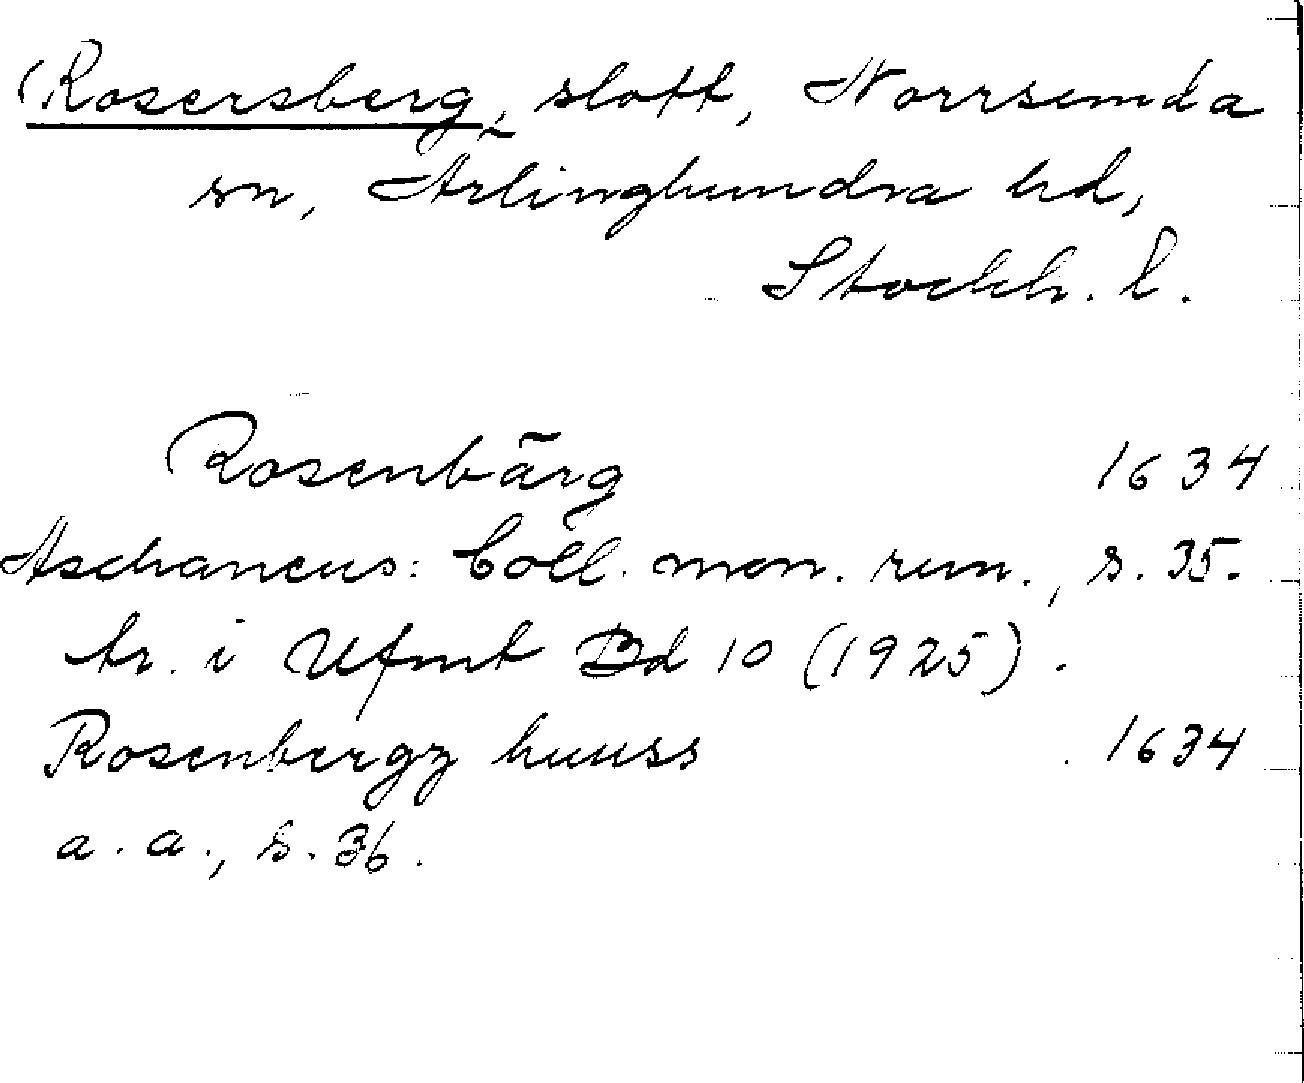 Rosersberg, slott, Norrsunda
sn, Ärlinghundra hd,
Stockh. l.
Rosenbärg 1634
Aschaneus: Coll. mon. run., s. 35.
tr. i Ufmt Bd 10 (1925).
Rosenbergz huuss 1634
a. a., s. 36.